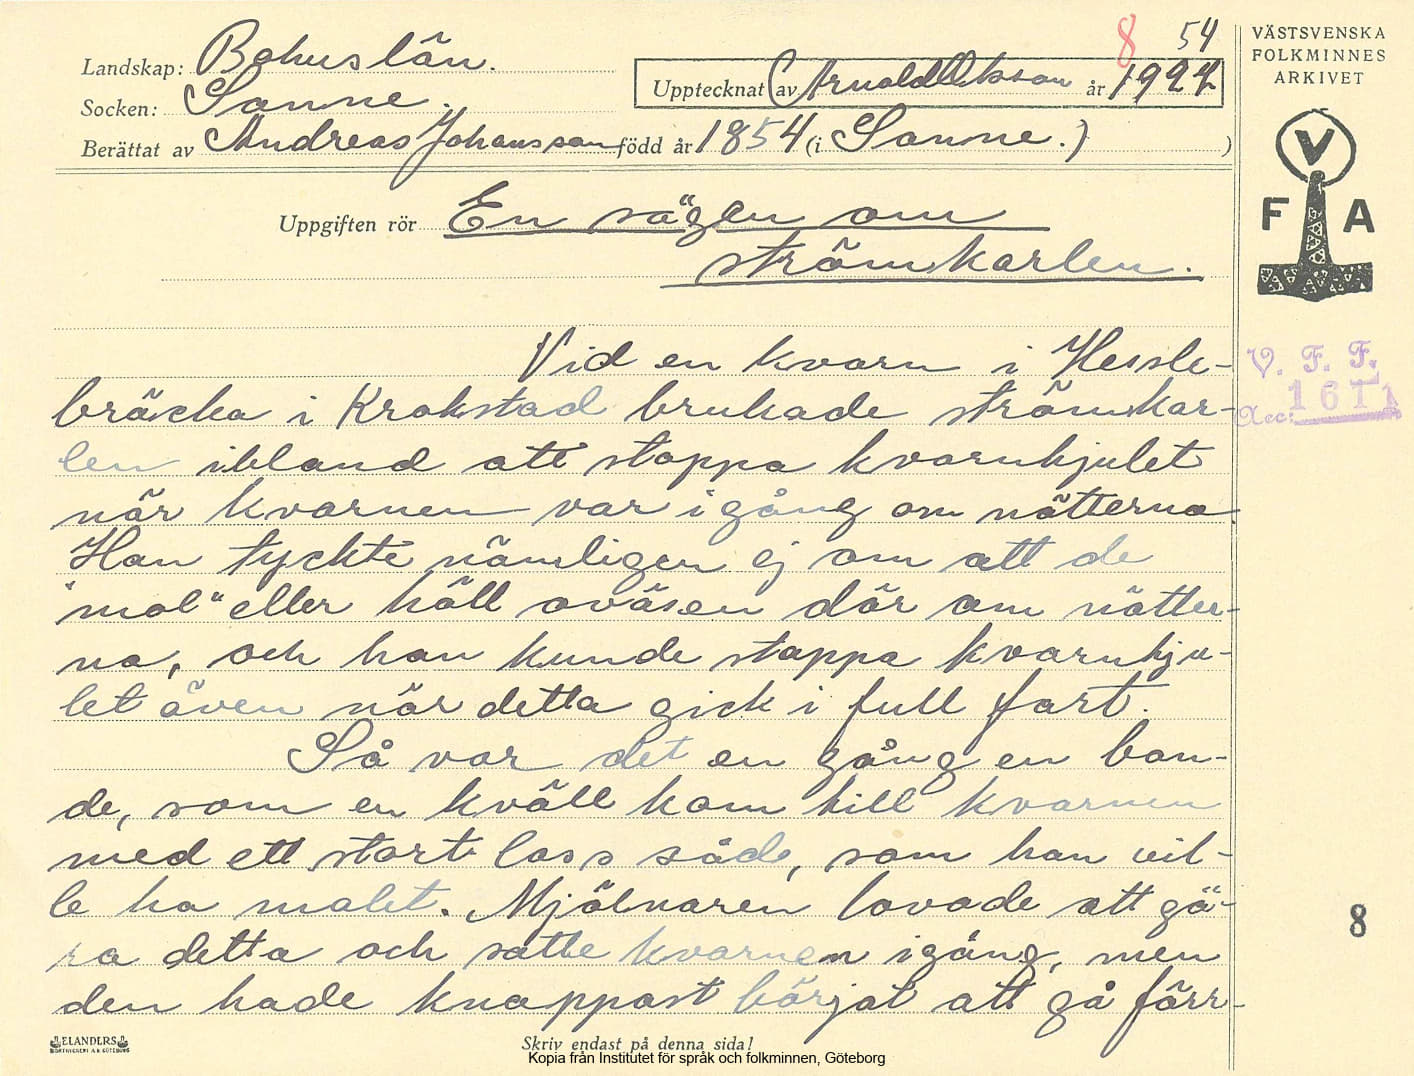 8 54
Landskap: Bohuslän.
Upptecknat av Arnold Olsson år 1927
Socken: Sanne.
Berättat av Andreas Johansson född år 1854 (i Sanne.) )
Uppgiften rör En sägen om
strömkarlen.
VÄSTSVENSKA
FOLKMINNES
ARKIVET
V
F A
V. F. F.
Acc: 1611
Vid en kvarn i Hessle-
bräcka i Krokstad brukade strömkar-
len ibland att stoppa kvarnhjulet
när kvarnen var igång om nätterna.
Han tyckte nämligen ej om att de
"mol" eller höll oväsen där om nätter-
na, och han kunde stoppa kvarnhju-
let även när detta gick i full fart.
Så var det en gång en bon-
de, som en kväll kom till kvarnen
med ett stort lass säde, som han vil-
le ha malet. Mjölnaren lovade att gö-
ra detta och satte kvarnen igång, men
den hade knappast börjat att gå förr-
8
ELANDERS
BOKTRYCKERI A.B. GÖTEBORG
Skriv endast på denna sida!
Kopia från Institutet för språk och folkminnen, Göteborg